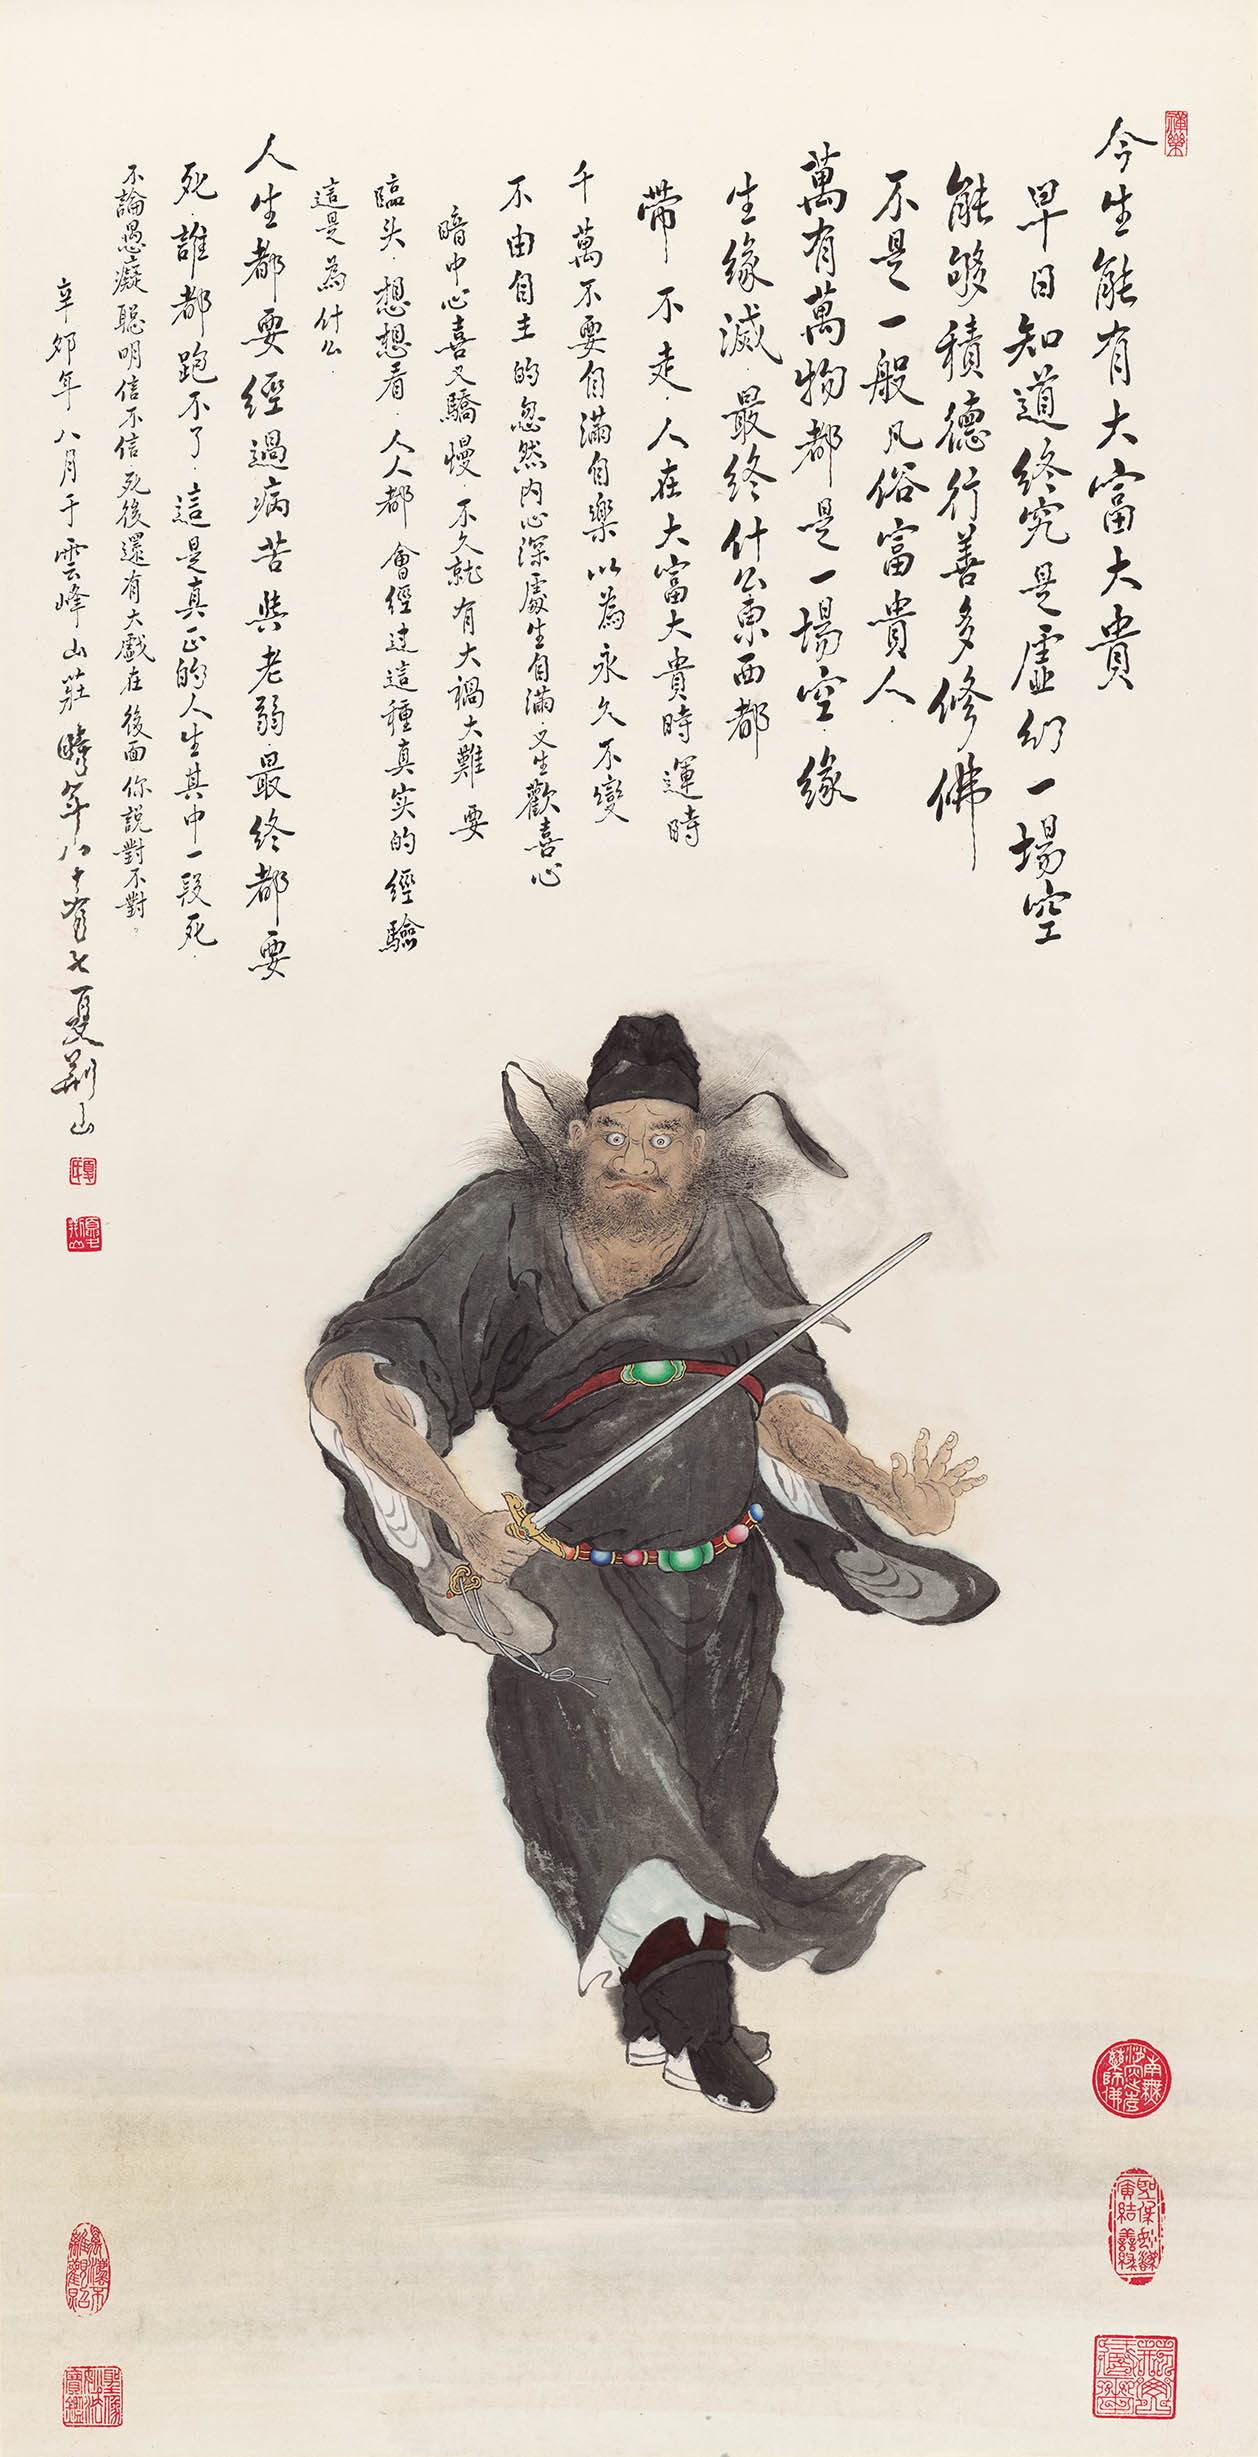 今生能有大富大貴
早日知道終究是虛幻一場空
能够積德行善多修佛
不是一般凡俗富貴人
萬有萬物都是一場空緣
生緣滅最終什么東西都
帶不走人在大富大貴時運時
千萬不要自滿自樂以為永久不變
不由自主的忽然内心深處生自滿又生歡喜心
暗中心喜又驕慢不久就有大禍大難要
臨头想想看人人都會經过這種真实的經驗
這是為什么
人生都要經過病苦與老弱最終都要
死誰都跑不了這是真正的人生其中一段死
不論愚癡聰明信不信死後還有大戲在後面你説對不對?
辛卯年八月于雲峰山莊時年八十有七夏荆山
禪樂
夏荆山
南無消災延壽藥師佛
聖像妙法寶鑑